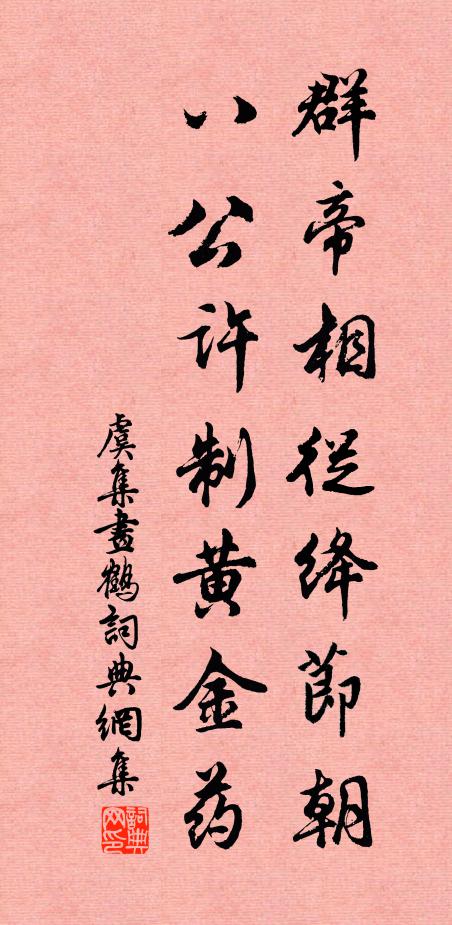 群帝相從绛節朝
八公許制黄金药
虞集畫鶴詞典網集
詞典网印